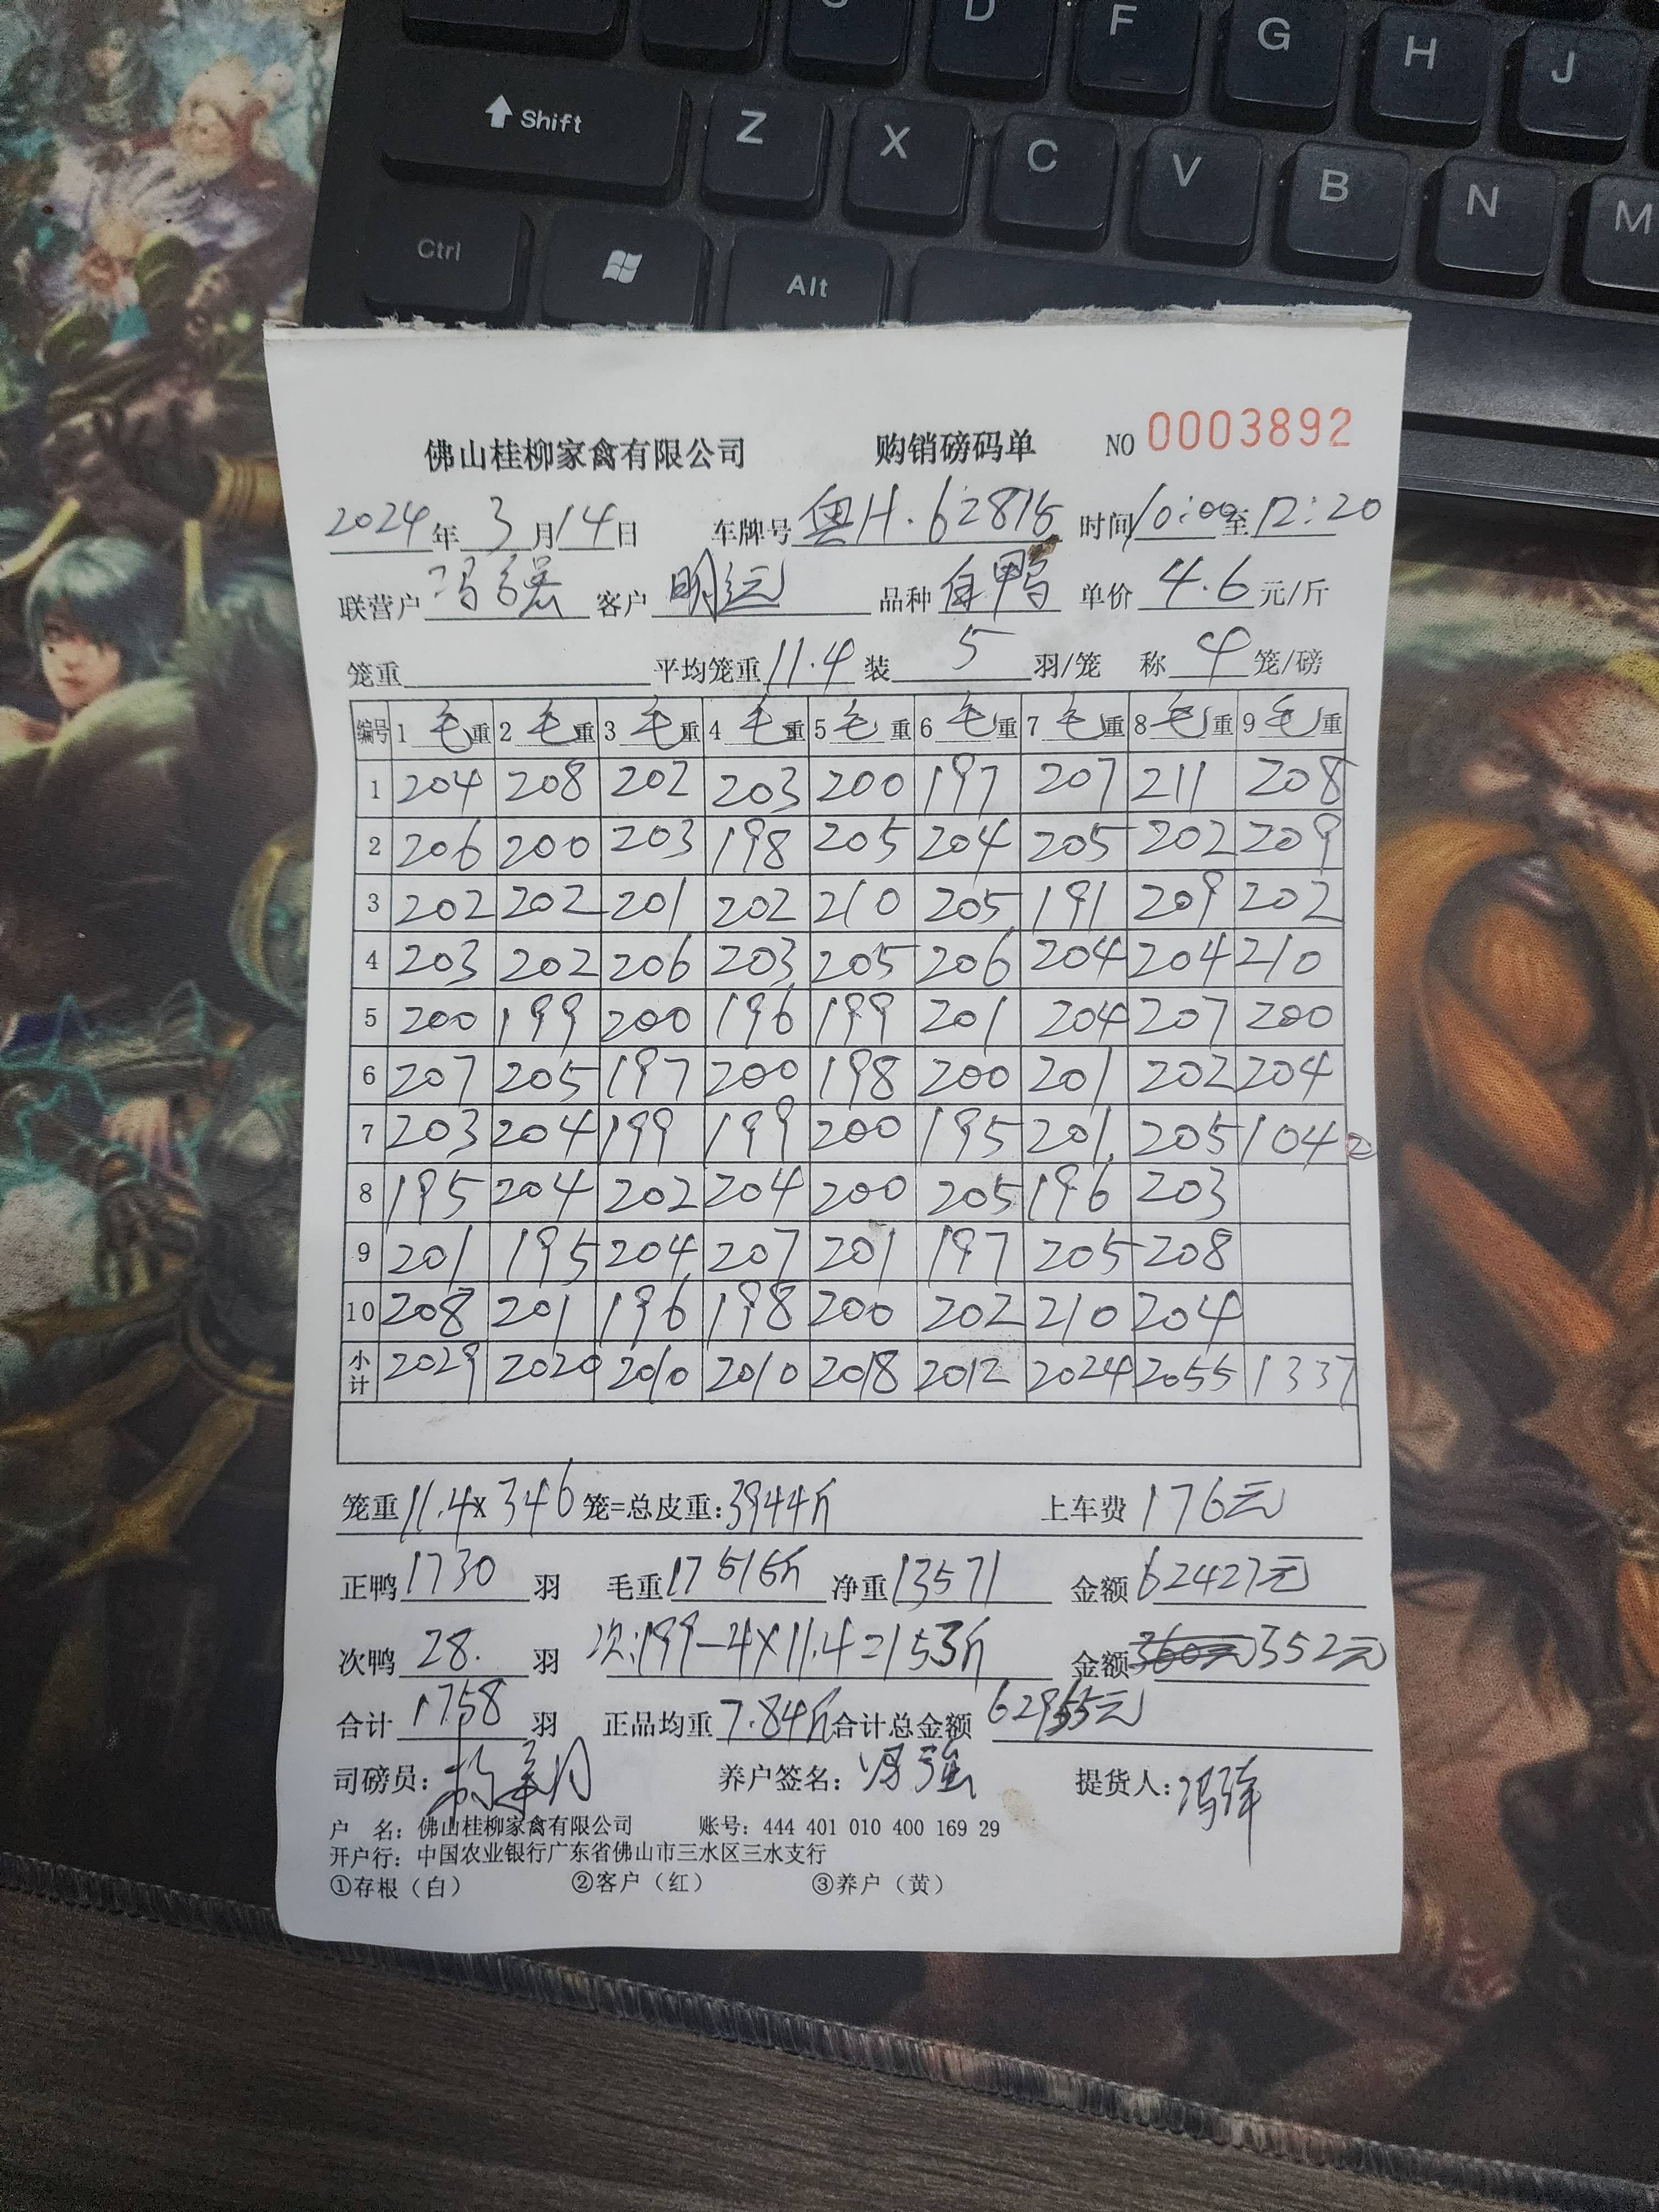 D F G H J
Shift Z X C V B N M
Ctrl Alt
佛山桂柳家禽有限公司 购销磅码单 NO 0003892
2024年3月14日 车牌号 粤H·62815 时间10:00至12:20
联营户 冯强 客户 明远 品种 白鸭 单价 4.6 元/斤
笼重 平均笼重 11.4 装 5 羽/笼 称 4 笼/磅
编号 1 毛重 2 毛重 3 毛重 4 毛重 5 毛重 6 毛重 7 毛重 8 毛重 9 毛重
1 204 208 202 203 200 197 207 211 208
2 206 200 203 198 205 204 205 202 209
3 202 202 201 202 210 205 191 209 202
4 203 202 206 203 205 206 204 204 210
5 200 199 200 196 199 201 204 207 200
6 207 205 197 200 198 200 201 202 204
7 203 204 199 199 200 195 201 205 104 ②
8 195 204 202 204 200 205 196 203
9 201 195 204 207 201 197 205 208
10 208 201 196 198 200 202 210 204
小计 2029 2020 2010 2010 2018 2012 2024 2055 1337
笼重 11.4×346 笼=总皮重:3944斤 上车费 176元
正鸭 1730 羽 毛重 17515斤 净重 13571 金额 62427元
次鸭 28. 羽 次:199-4×11.4=153斤 金额 360元 352元
合计 1758 羽 正品均重 7.84斤 合计总金额 62955元
司磅员: 养户签名: 冯强 提货人:
户 名: 佛山桂柳家禽有限公司 账号: 444 401 010 400 169 29
开户行: 中国农业银行广东省佛山市三水区三水支行
①存根(白) ②客户(红) ③养户(黄)